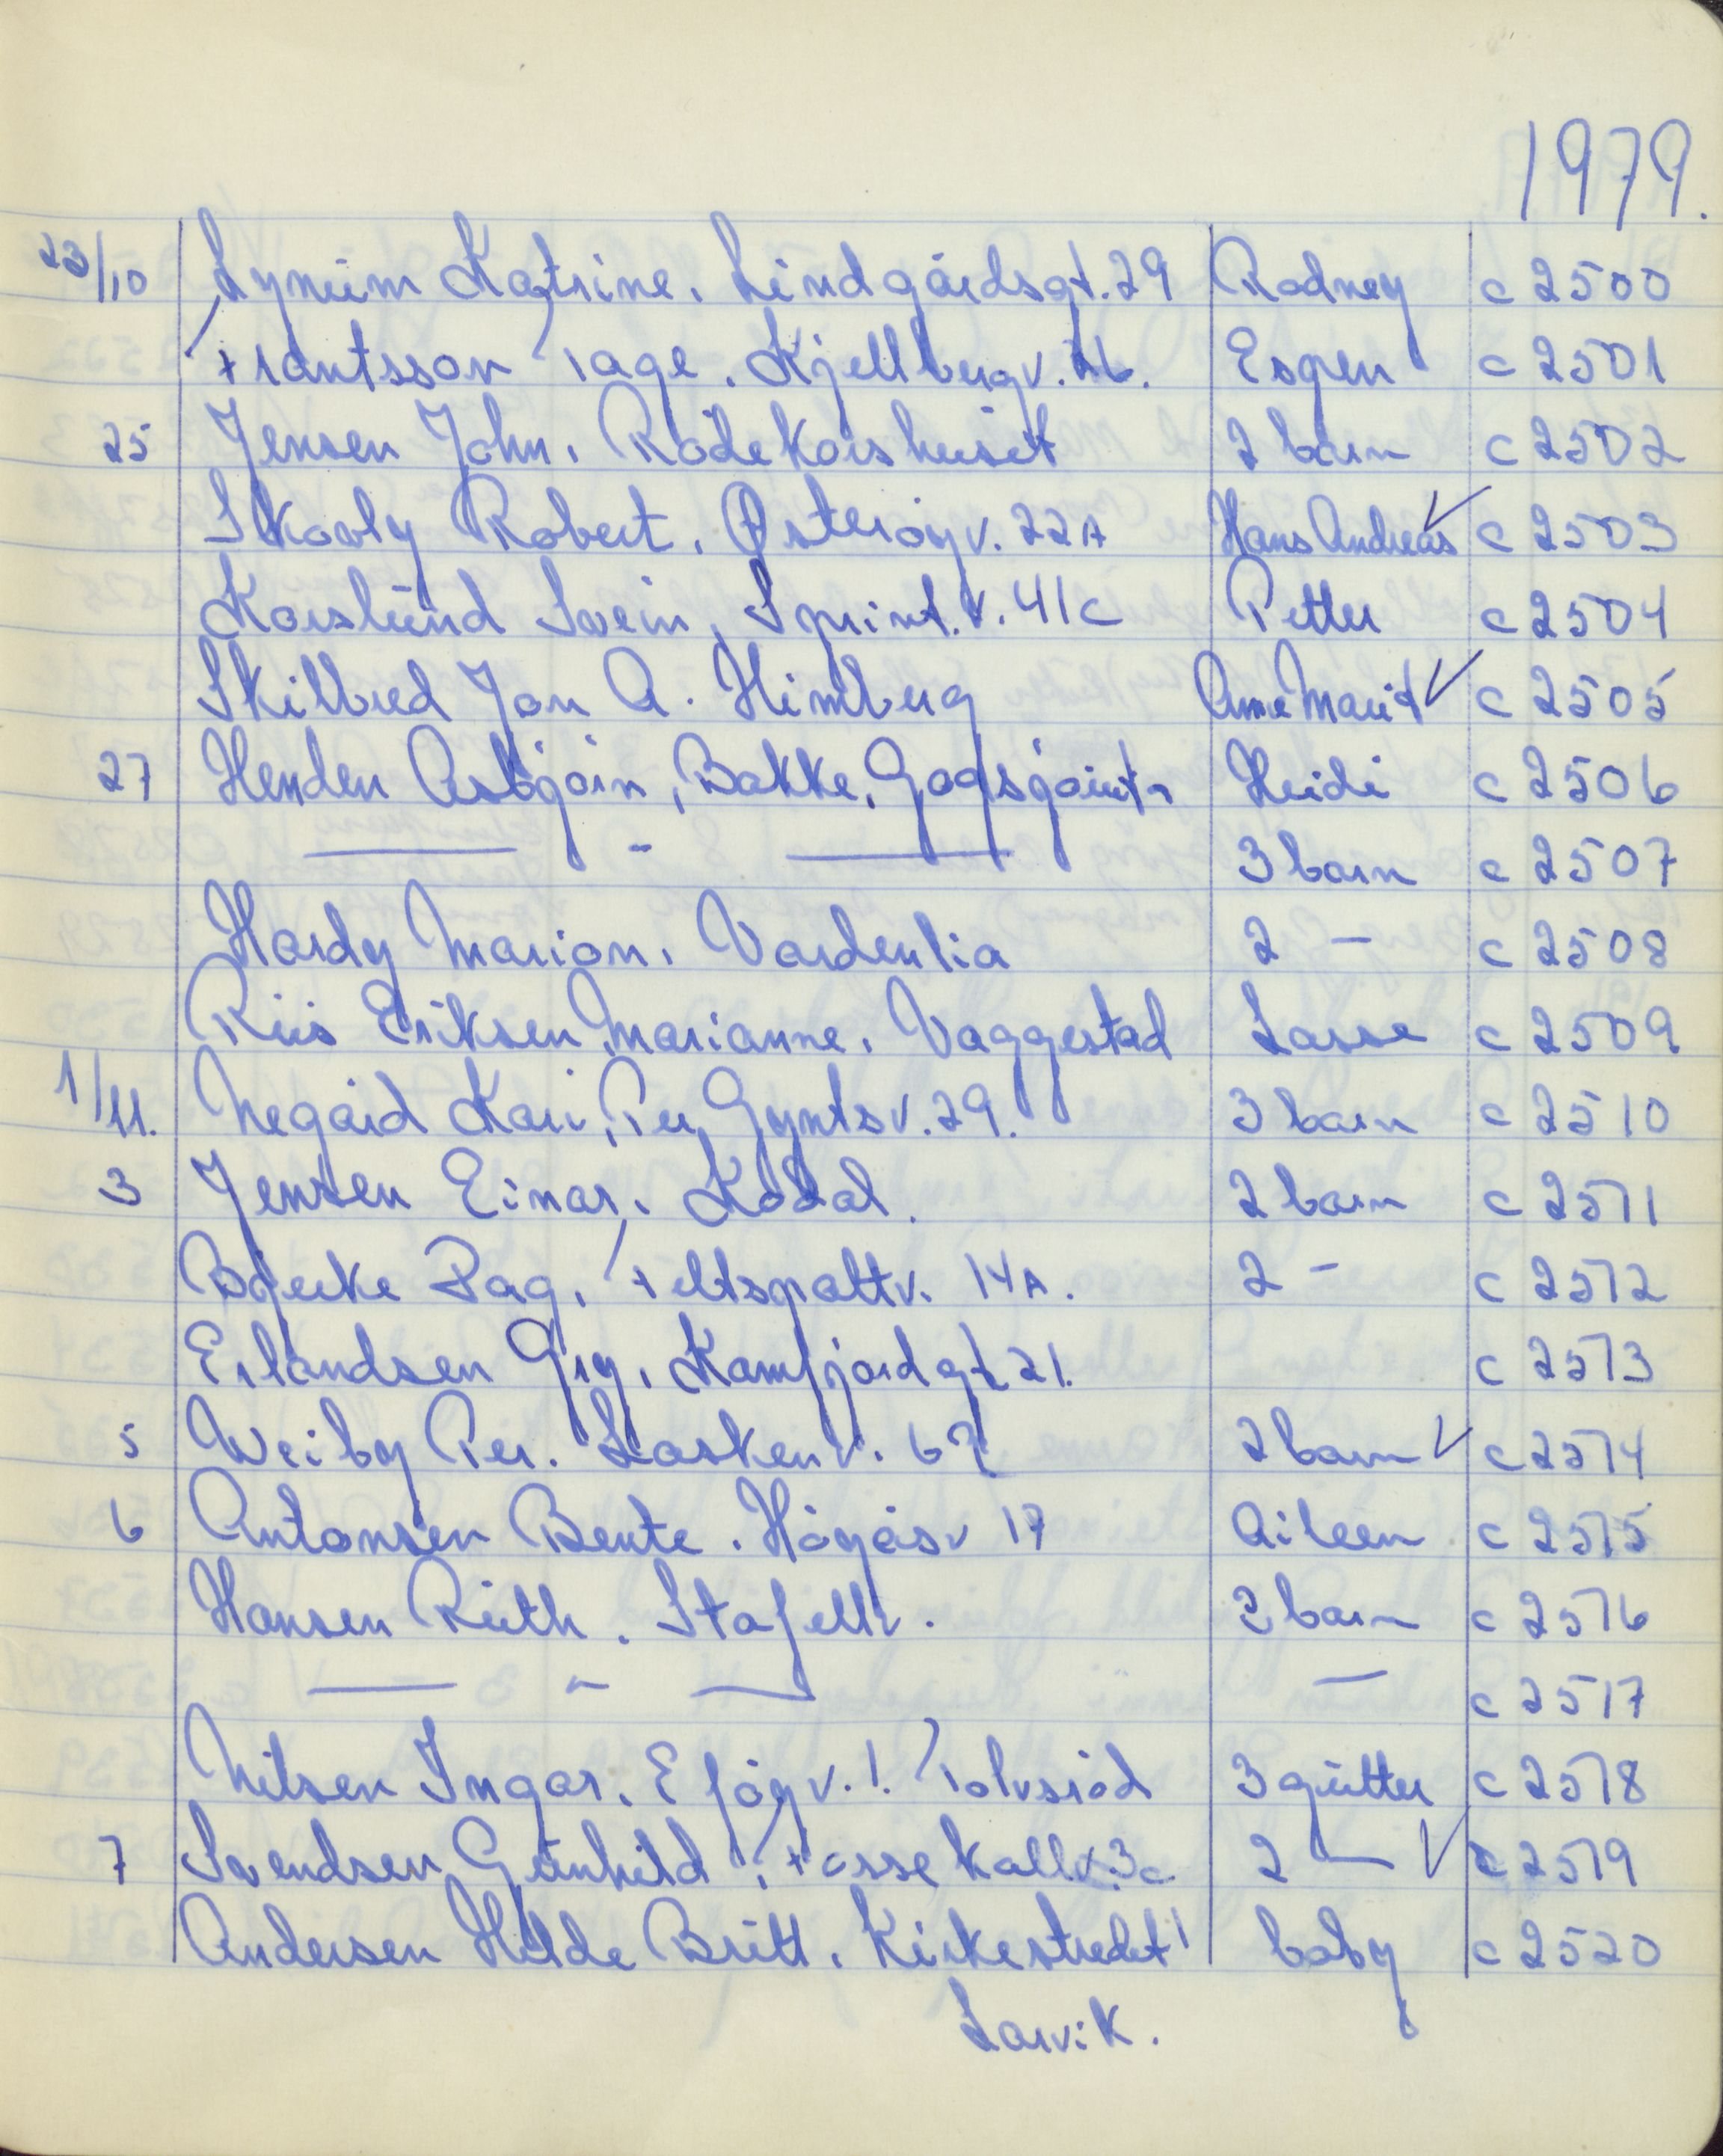 1979.
23/10 Lynum Katrine, Lindgårdsgt. 29 Rodney c 2500
Frantsson Tage. Kjellbergv. Espen c 2501
25 Jensen John, Røde Korshuset 2 barn c 2502
Skovly Robert, Østerøyv. 22A Hans Andreas ✓ c 2503
Korslund Svein, Sprint.v. 41c Petter c 2504
Skilbred Jon A. Himberg Anne Marit ✓ c 2505
27 Henden Asbjørn, Bakke, Heidi c 2506
— " — 3 barn c 2507
Hardy Marion, Vardenlia 2 — c 2508
Riis Eriksen Marianne, Vaggestad Lasse c 2509
1/11. Negård Kari, Per Gyntsv. 29. 3 barn c 2510
3 Jensen Einar, Kodal. 2 barn c 2511
Bjerke Dag, Feltspattv. 14A. 2 - c 2512
Erlandsen Gry, Kamfjordgt 21. c 2513
5 Weiby Per. Laskenv. 67 2 barn ✓ c 2514
6 Antonsen Bente. Høyåsv 17 Aileen c 2515
Hansen Ruth. Stafettv. 2 barn c 2516
— " — — c 2517
Nilsen Ingar, Eføyv. 1. Tolvsrød 3 gutter c 2518
7 Svendsen Gunhild, Fossekallv. 3c 2 — ✓ c 2519
Andersen Hilde Britt, Kirkestredet 1 baby c 2520
Larvik.